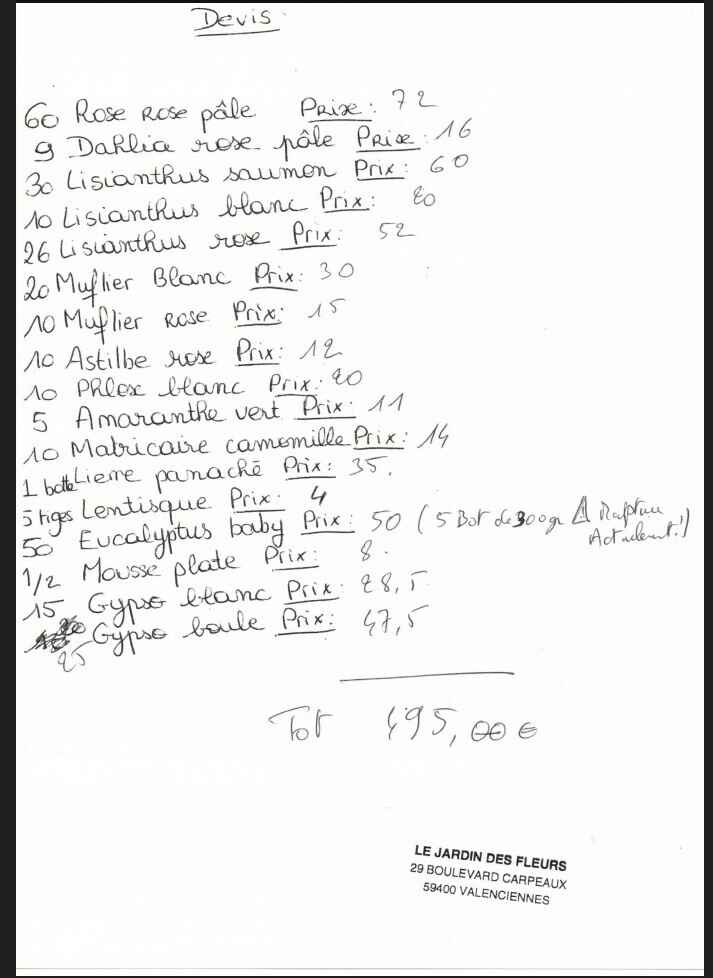 Devis
60 Rose rose pâle Prixe : 72
9 Dahlia rose pâle Prixe : 16
30 Lisianthus saumon Prix : 60
10 Lisianthus blanc Prix : 20
26 Lisianthus rose Prix : 52
20 Muflier Blanc Prix : 30
10 Muflier rose Prix : 15
10 Astilbe rose Prix : 12
10 Phlox blanc Prix : 20
5 Amaranthe vert Prix : 11
10 Matricaire camomille Prix : 14
1 botte Lierre panaché Prix : 35.
5 tiges Lentisque Prix : 4
50 Eucalyptus baby Prix : 50 ( 5 Bot de 300gr ⚠ Rupture
Actuelement ! )
1/2 Mousse plate Prix : 8.
15 Gypso blanc Prix : 28,5
25 Gypso boule Prix : 47,5
Tot 495,00 €
LE JARDIN DES FLEURS
29 BOULEVARD CARPEAUX
59400 VALENCIENNES